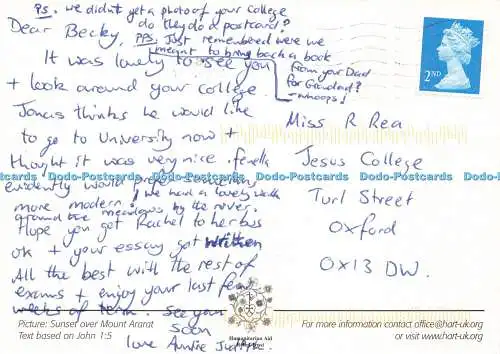 PS. we didn't get a photo of your College
do they do a postcard?
Dear Becky,
PPS Just remembered were we
meant to bring back a book
from your Dad
for Grandad?
- whoops!
It was lovely to see you
+ look around your College
Jonas thinks he would like
to go to University now +
thought it was very nice. Fenella
evidently would prefer something
more modern! We had a lovely walk
around the meadows by the river.
Hope you got Rachel to her bus
ok + your essay got written
All the best with the rest of
exams + enjoy your last few
weeks of term. See you
soon
love Auntie
2ND
Miss R Rea
Jesus College
Turl Street
Oxford
OX13 DW.
Picture: Sunset over Mount Ararat
Text based on John 1:5
Humanitarian Aid
For more information contact office@hart-uk.org
or visit www.hart-uk.org
Dodo-Postcards Dodo-Postcards Dodo-Postcards Dodo-Postcards Dodo-Postcards